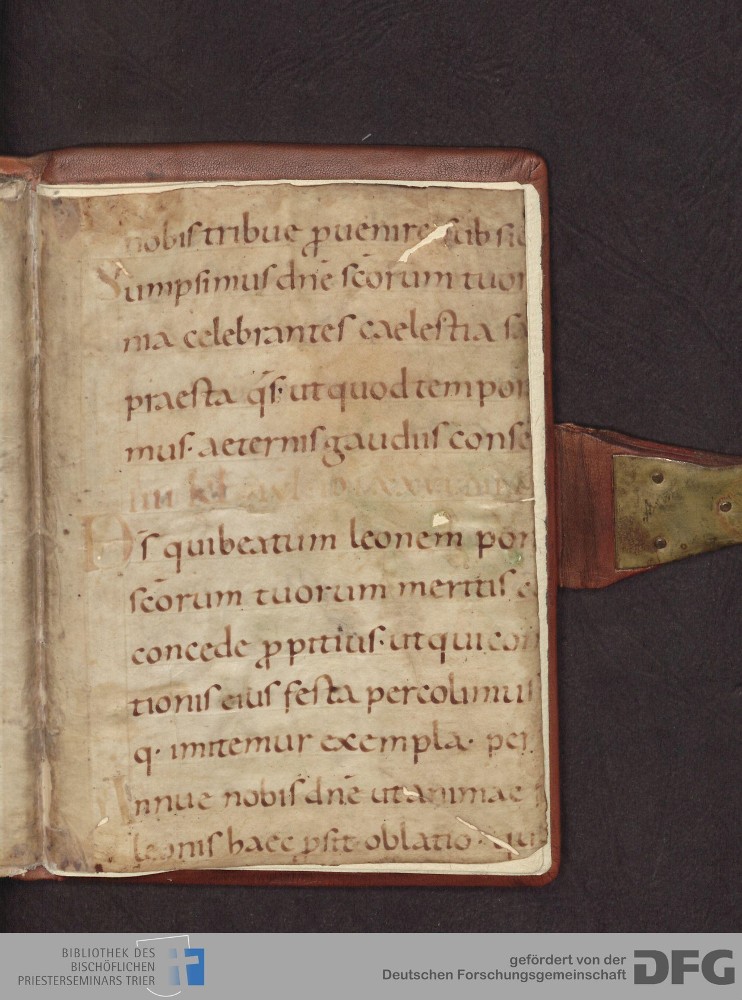 nobis tribue ꝓuenire subsid
Sumpsimus dn̄e sc̄orum tuor
nia celebrantes caelestia sa
praesta q̄s· ut quod tempor
mus· aeternis gaudiis conse
D̄s qui beatum leonem pon
sc̄orum tuorum meritis
concede ꝓpitius· ut qui com
tionis eius festa percolimus
q· imitemur exempla· per
Annue nobis dn̄e ut animae
leonis haec ꝓsit oblatio· qu
BIBLIOTHEK DES
BISCHÖFLICHEN
PRIESTERSEMINARS TRIER
gefördert von der
Deutschen Forschungsgemeinschaft
DFG